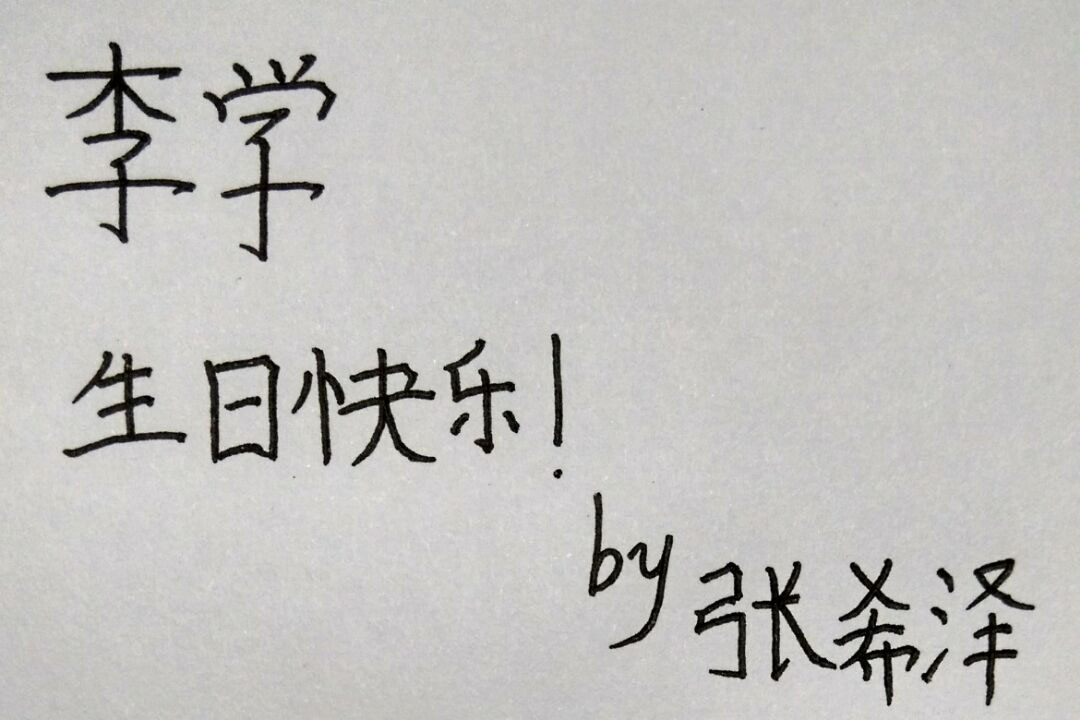 李学
生日快乐!
by 张希泽